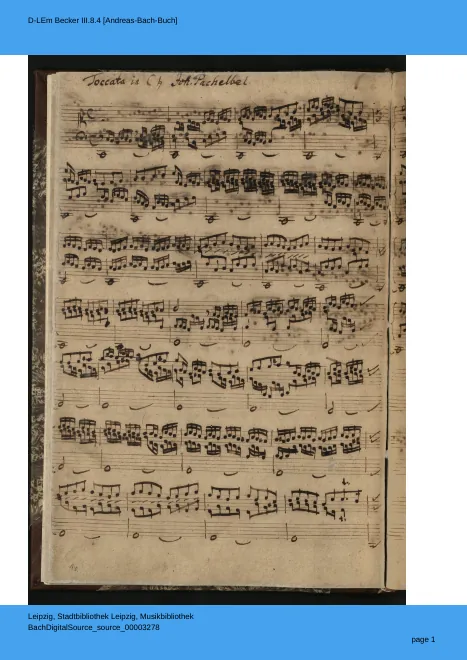 D-LEm Becker III.8.4 [Andreas-Bach-Buch]
Toccata in C ♮ Joh. Pachelbel
Leipzig, Stadtbibliothek Leipzig, Musikbibliothek
BachDigitalSource_source_00003278
page 1